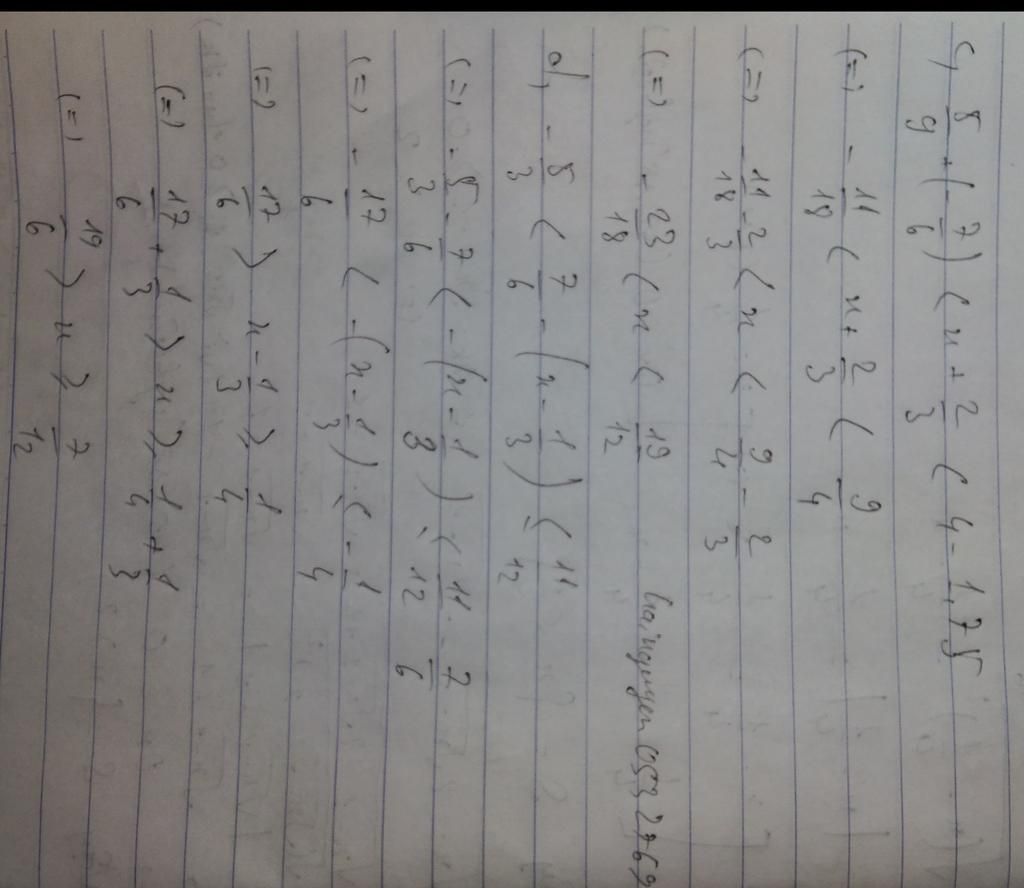 c, 5/9 + (-7/6) < x + 2/3 < 4 - 1,75
(=) -11/18 < x + 2/3 < 9/4
(=) -11/18 - 2/3 < x < 9/4 - 2/3
(=) -23/18 < x < 19/12 hainguyen0532769
d, -5/3 < 7/6 - (x - 1/3) ≤ 11/12
(=) -5/3 - 7/6 < -(x - 1/3) ≤ 11/12 - 7/6
(=) -17/6 < -(x - 1/3) ≤ -1/4
(=) 17/6 > x - 1/3 ≥ 1/4
(=) 17/6 + 1/3 > x ≥ 1/4 + 1/3
(=) 19/6 > x ≥ 7/12